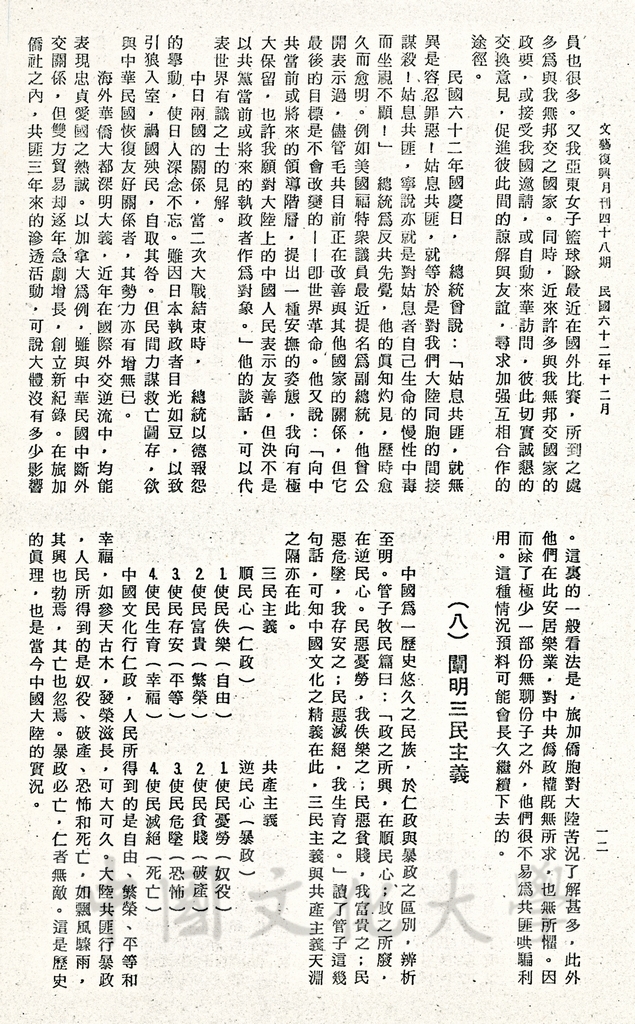 文藝復興月刊四十八期　民國六十二年十二月
一二
員也很多。又我亞東女子籃球隊最近在國外比賽，所到之處
多為與我無邦交之國家。同時，近來許多與我無邦交國家的
政要，或接受我國邀請，或自動來華訪問，彼此切實誠懇的
交換意見，促進彼此間的諒解與友誼，尋求加强互相合作的
途徑。
民國六十二年國慶日，　總統曾說：「姑息共匪，就無
異是容忍罪惡！姑息共匪，就等於是對我們大陸同胞的間接
謀殺！姑息共匪，寧說亦就是對姑息者自己生命的慢性中毒
而坐視不顧！」　總統爲反共先覺，他的眞知灼見，歷時愈
久而愈明。例如美國福特衆議員最近提名爲副總統，他曾公
開表示過，儘管毛共目前正在改善與其他國家的關係，但它
最後的目標是不會改變的——卽世界革命。他又說：「向中
共當前或將來的領導階層，提出一種安撫的姿態，我向有極
大保留，也許我願對大陸上的中國人民表示友善，但決不是
以共黨當前或將來的執政者作爲對象。」他的談話，可以代
表世界有識之士的見解。
中日兩國的關係，當二次大戰結束時，　總統以德報怨
的舉動，使日人深念不忘。雖因日本執政者目光如豆，以致
引狼入室，禍國殃民，自取其咎。但民間力謀救亡圖存，欲
與中華民國恢復友好關係者，其勢力亦有增無已。
海外華僑大都深明大義，近年在國際外交逆流中，均能
表現忠貞愛國之熱誠。以加拿大爲例，雖與中華民國中斷外
交關係，但雙方貿易却逐年急劇增長，創立新紀錄。在旅加
僑社之內，共匪三年來的滲透活動，可說大體沒有多少影響
。這裏的一般看法是，旅加僑胞對大陸苦況了解甚多，此外
他們在此安居樂業，對中共僞政權旣無所求，也無所懼。因
而除了極少一部份無聊份子之外，他們很不易爲共匪哄騙利
用。這種情況預料可能會長久繼續下去的。
（八）闡明三民主義
中國爲一歷史悠久之民族，於仁政與暴政之區別，辨析
至明。管子牧民篇曰：「政之所興，在順民心；政之所廢，
在逆民心。民惡憂勞，我佚樂之；民惡貧賤，我富貴之；民
惡危墜，我存安之；民惡滅絕，我生育之。」讀了管子這幾
句話，可知中國文化之精義在此，三民主義與共產主義天淵
之隔亦在此。
三民主義　共產主義
順民心（仁政）　逆民心（暴政）
1.使民佚樂（自由）　1.使民憂勞（奴役）
2.使民富貴（繁榮）　2.使民貧賤（破產）
3.使民存安（平等）　3.使民危墜（恐怖）
4.使民生育（幸福）　4.使民滅絕（死亡）
中國文化行仁政，人民所得到的是自由、繁榮、平等和
幸福，如參天古木，發榮滋長，可大可久。大陸共匪行暴政
，人民所得到的是奴役、破產、恐怖和死亡，如飄風驟雨，
其興也勃焉，其亡也忽焉。暴政必亡，仁者無敵。這是歷史
的眞理，也是當今中國大陸的實況。
中國文化大學